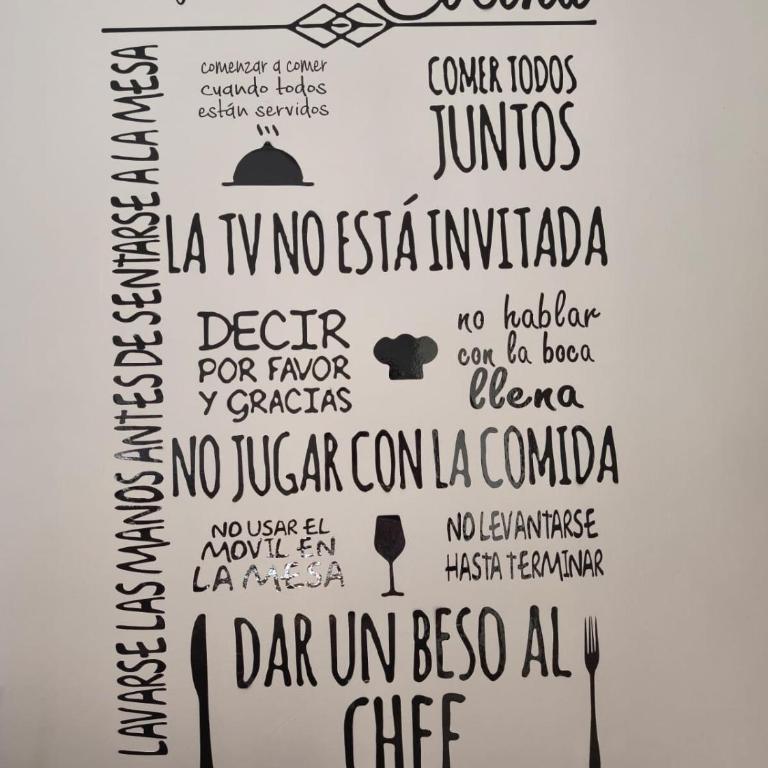 Cocina
LAVARSE LAS MANOS ANTES DE SENTARSE A LA MESA
comenzar a comer
cuando todos
están servidos
COMER TODOS
JUNTOS
LA TV NO ESTÁ INVITADA
DECIR
POR FAVOR
Y GRACIAS
no hablar
con la boca
llena
NO JUGAR CON LA COMIDA
NO USAR EL
MOVIL EN
LA MESA
NO LEVANTARSE
HASTA TERMINAR
DAR UN BESO AL
CHEF